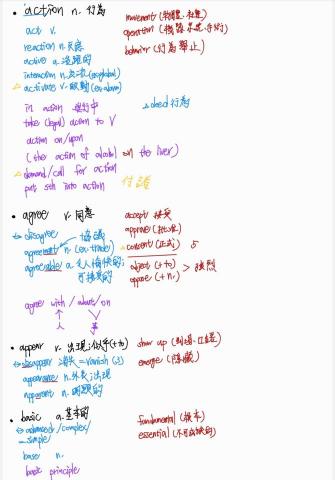 • action n. 行為
movement (
act v.
operation (
reaction n. 反應
behavior (行為舉止)
active a. 活躍的
interaction n. 交流 (
activate v. 啟動 (
in action
deed 行為
take (legal) action to V
action on/upon
(the action of alcohol on the liver)
demand/call for action
put sth into action 付諸
• agree v. 同意
accept 接受
disagree
approve (批准)
agreement n. 協議
consent (正式)
agreeable a. 令人愉快的;
可接受的
object (+to)
oppose (+n.) > 強烈
agree with / about/on
↑
人 事
• appear v. 出現;似乎(+to)
show up (
disappear 消失 = vanish (
emerge (
appearance n. 外表;出現
apparent a. 明顯的
• basic a. 基本的
fundamental (根本)
advanced/complex/
essential (不可或缺的)
simple
base n.
basic principle